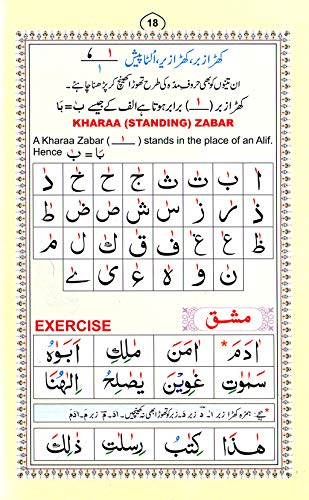 18
کھڑا زبر، کھڑا زیر، اُلٹا پیش
ان تینوں کو بھی حروف مدّہ کی طرح تھوڑا کھینچ کر پڑھنا چاہئے۔
کھڑا زبر ( ٰ ) برابر ہوتا ہے الف کے جیسے بٰ = بَا
KHARAA (STANDING) ZABAR
A Kharaa Zabar ( ٰ ) stands in the place of an Alif.
Hence بٰ = بَا
اٰ بٰ تٰ ثٰ جٰ حٰ خٰ دٰ
ذٰ رٰ زٰ سٰ شٰ صٰ ضٰ طٰ
ظٰ عٰ غٰ فٰ قٰ كٰ لٰ مٰ
نٰ وٰ هٰ ءٰ یٰ ےٰ
EXERCISE مشق
اٰدَمَ* اٰمَنَ مٰلِكِ اَبَوٰهُ
سَمٰوٰتٍ غٰوِيْنَ يٰصٰلِحُ اِلٰهُنَا
هٰذَا كِتٰبٌ رِسٰلٰتِ ذٰلِكَ